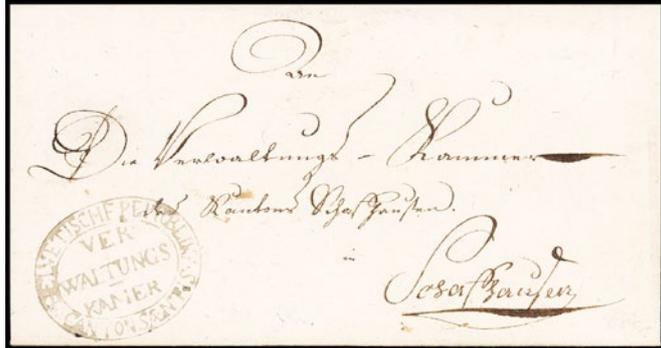 An
Die Verwaltungs-Kammer
des Kantons Schafhausen.
in
Schafhausen
HELVETISCHE REPUBLIK
VER
WALTUNGS
KAMER
CANTONS